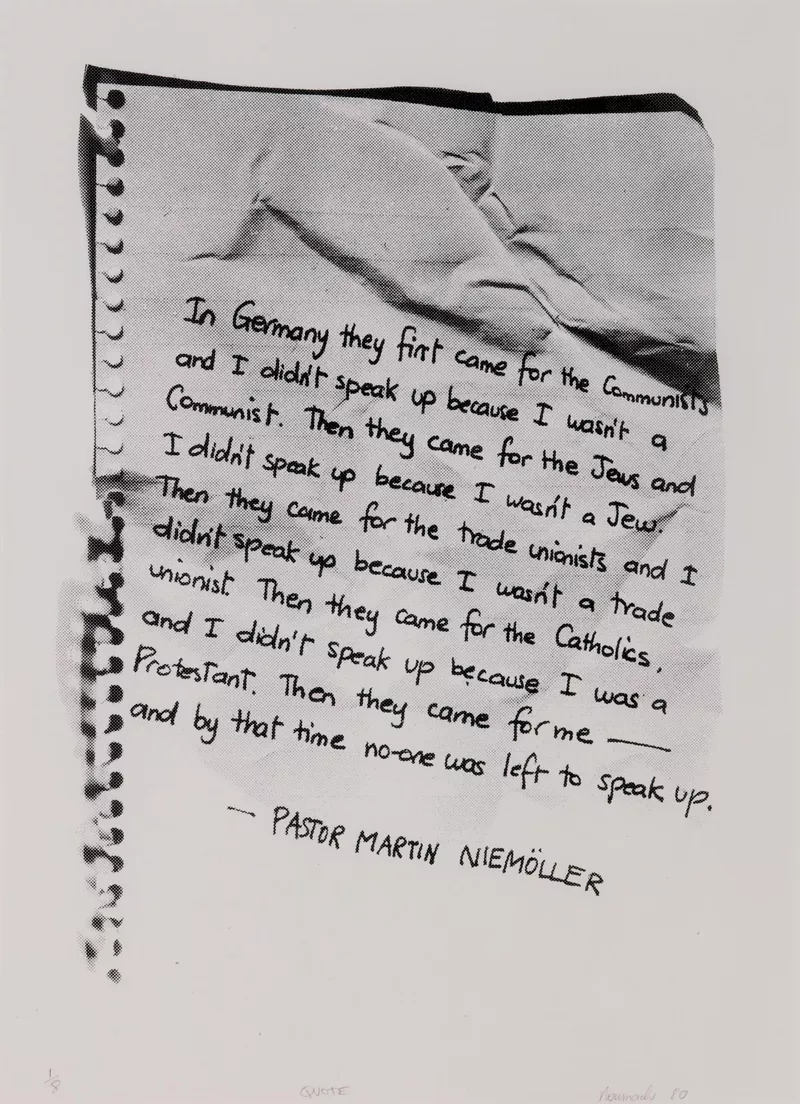 In Germany they first came for the Communists
and I didn't speak up because I wasn't a
Communist. Then they came for the Jews and
I didn't speak up because I wasn't a Jew.
Then they came for the trade unionists and I
didn't speak up because I wasn't a trade
unionist Then they came for the Catholics,
and I didn't speak up because I was a
Protestant. Then they came for me —
and by that time no-one was left to speak up.
— PASTOR MARTIN NIEMÖLLER
1/8 QUOTE 80